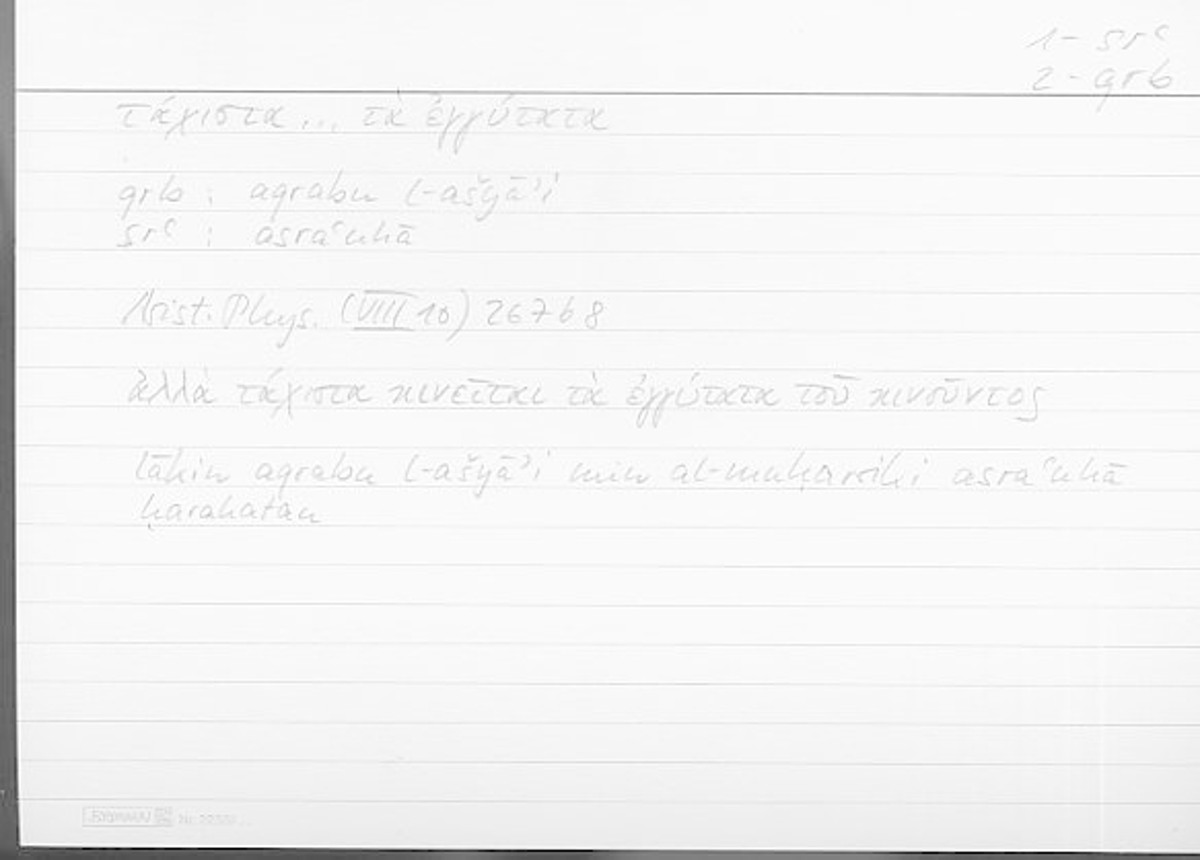 1- srʿ
2- qrb
τάχιστα... τὰ ἐγγύτατα
qrb : aqrabu l-ašyāʾi
srʿ : asraʿuhā
Arist. Phys. (VIII 10) 267b8
ἀλλὰ τάχιστα κινεῖται τὰ ἐγγύτατα τοῦ κινοῦντος
lākin aqrabu l-ašyāʾi min al-muḥarriki asraʿuhā
ḥarakatan